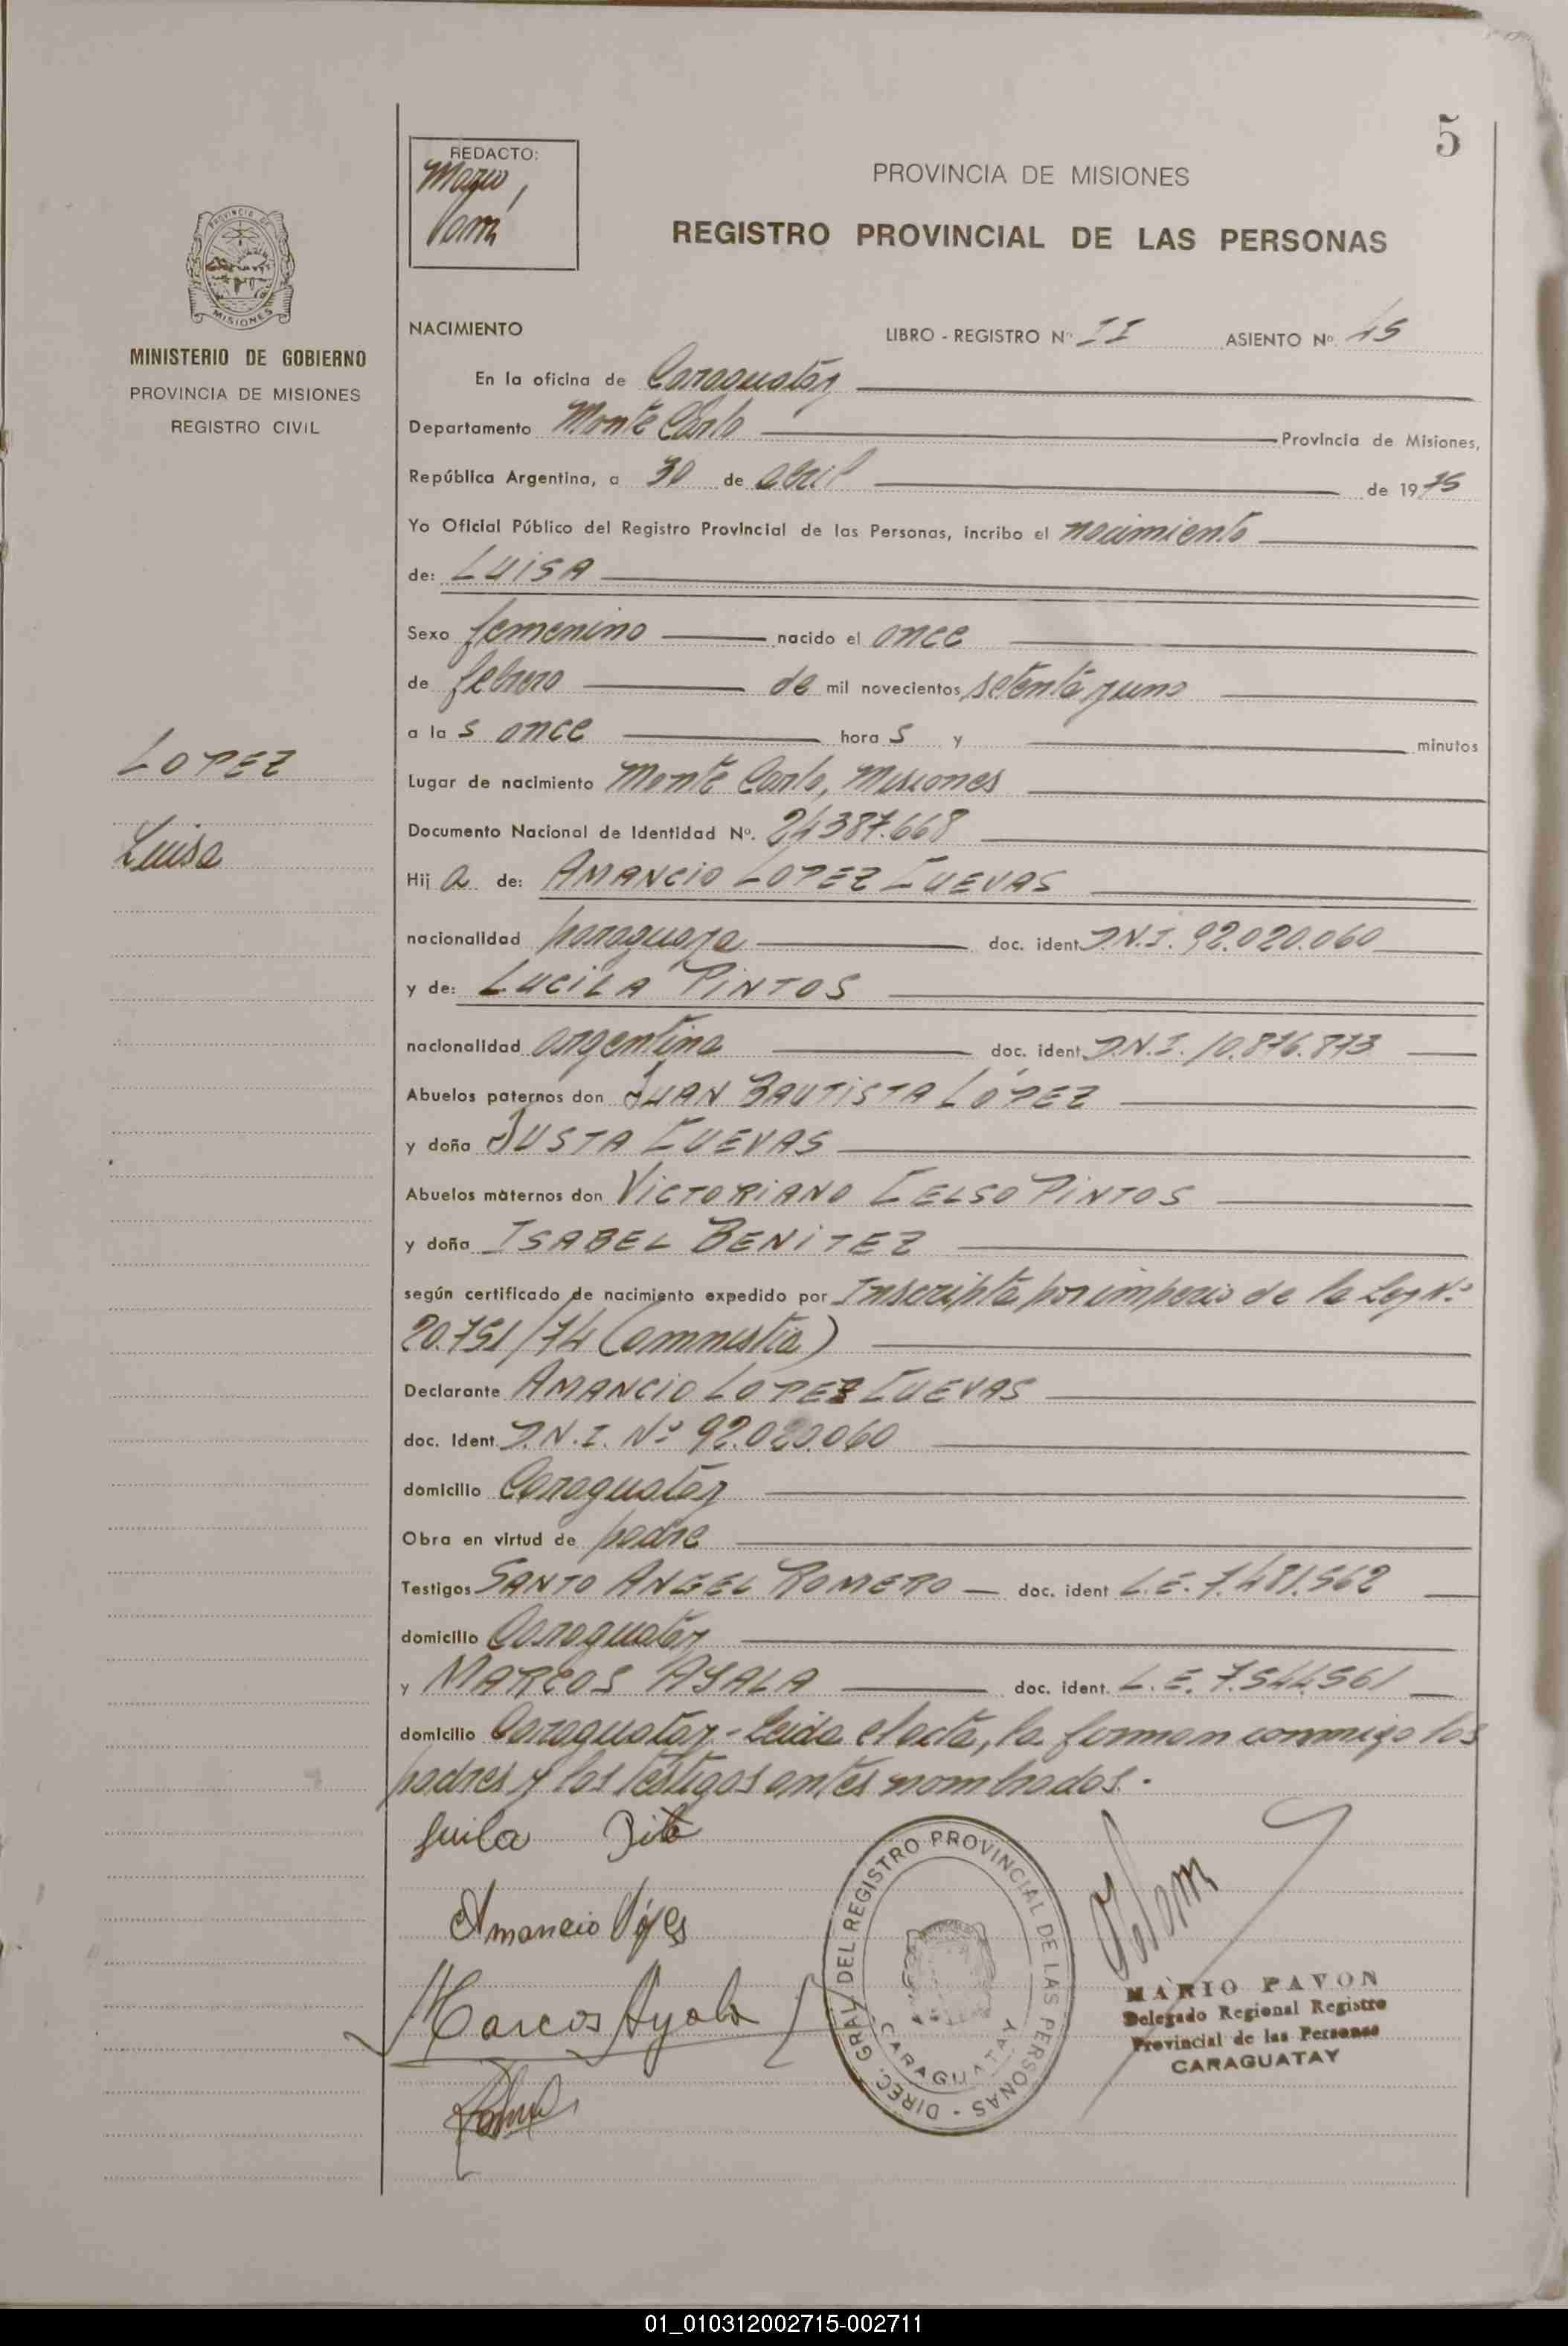 5
REDACTO:
Mario
PROVINCIA DE MISIONES
REGISTRO PROVINCIAL DE LAS PERSONAS
PROVINCIA DE
MISIONES
MINISTERIO DE GOBIERNO
PROVINCIA DE MISIONES
REGISTRO CIVIL
NACIMIENTO LIBRO - REGISTRO Nº II ASIENTO Nº 45
En la oficina de Caraguatay
Departamento Monte Carlo Provincia de Misiones,
República Argentina, a 30 de abril de 1975
Yo Oficial Público del Registro Provincial de las Personas, incribo el nacimiento
de: LUISA
Sexo femenino nacido el once
de febrero de mil novecientos setenta y uno
a la s once hora s y minutos
LOPEZ
Luisa
Lugar de nacimiento Monte Carlo, Misiones
Documento Nacional de Identidad Nº. 24387.668
Hij a de: AMANCIO LOPEZ CUEVAS
nacionalidad paraguaya doc. ident. D.N.I. 92.020.060
y de: LUCILA PINTOS
nacionalidad argentina doc. ident. D.N.I. 10.876.873
Abuelos paternos don JUAN BAUTISTA LÓPEZ
y doña JUSTA CUEVAS
Abuelos maternos don VICTORIANO CELSO PINTOS
y doña ISABEL BENITEZ
según certificado de nacimiento expedido por Inscripta por imperio de la Ley Nº
20.751/74 (amnistia)
Declarante AMANCIO LOPEZ CUEVAS
doc. Ident. D.N.I. Nº 92.020.060
domicilio Caraguatay
Obra en virtud de padre
Testigos SANTO ANGEL ROMERO doc. ident L.E. 7.481.562
domicilio Caraguatay
y MARCOS AYALA doc. ident. L.E. 7.544.561
domicilio Caraguatay - Leida el acta, la forman conmigo los
padres y los testigos antes nombrados.
Amancio
Marcos Ayala
DIREC. GRAL. DEL REGISTRO PROVINCIAL DE LAS PERSONAS -
CARAGUATAY
MARIO PAVON
Delegado Regional Registro
Provincial de las Personas
CARAGUATAY
01_010312002715-002711